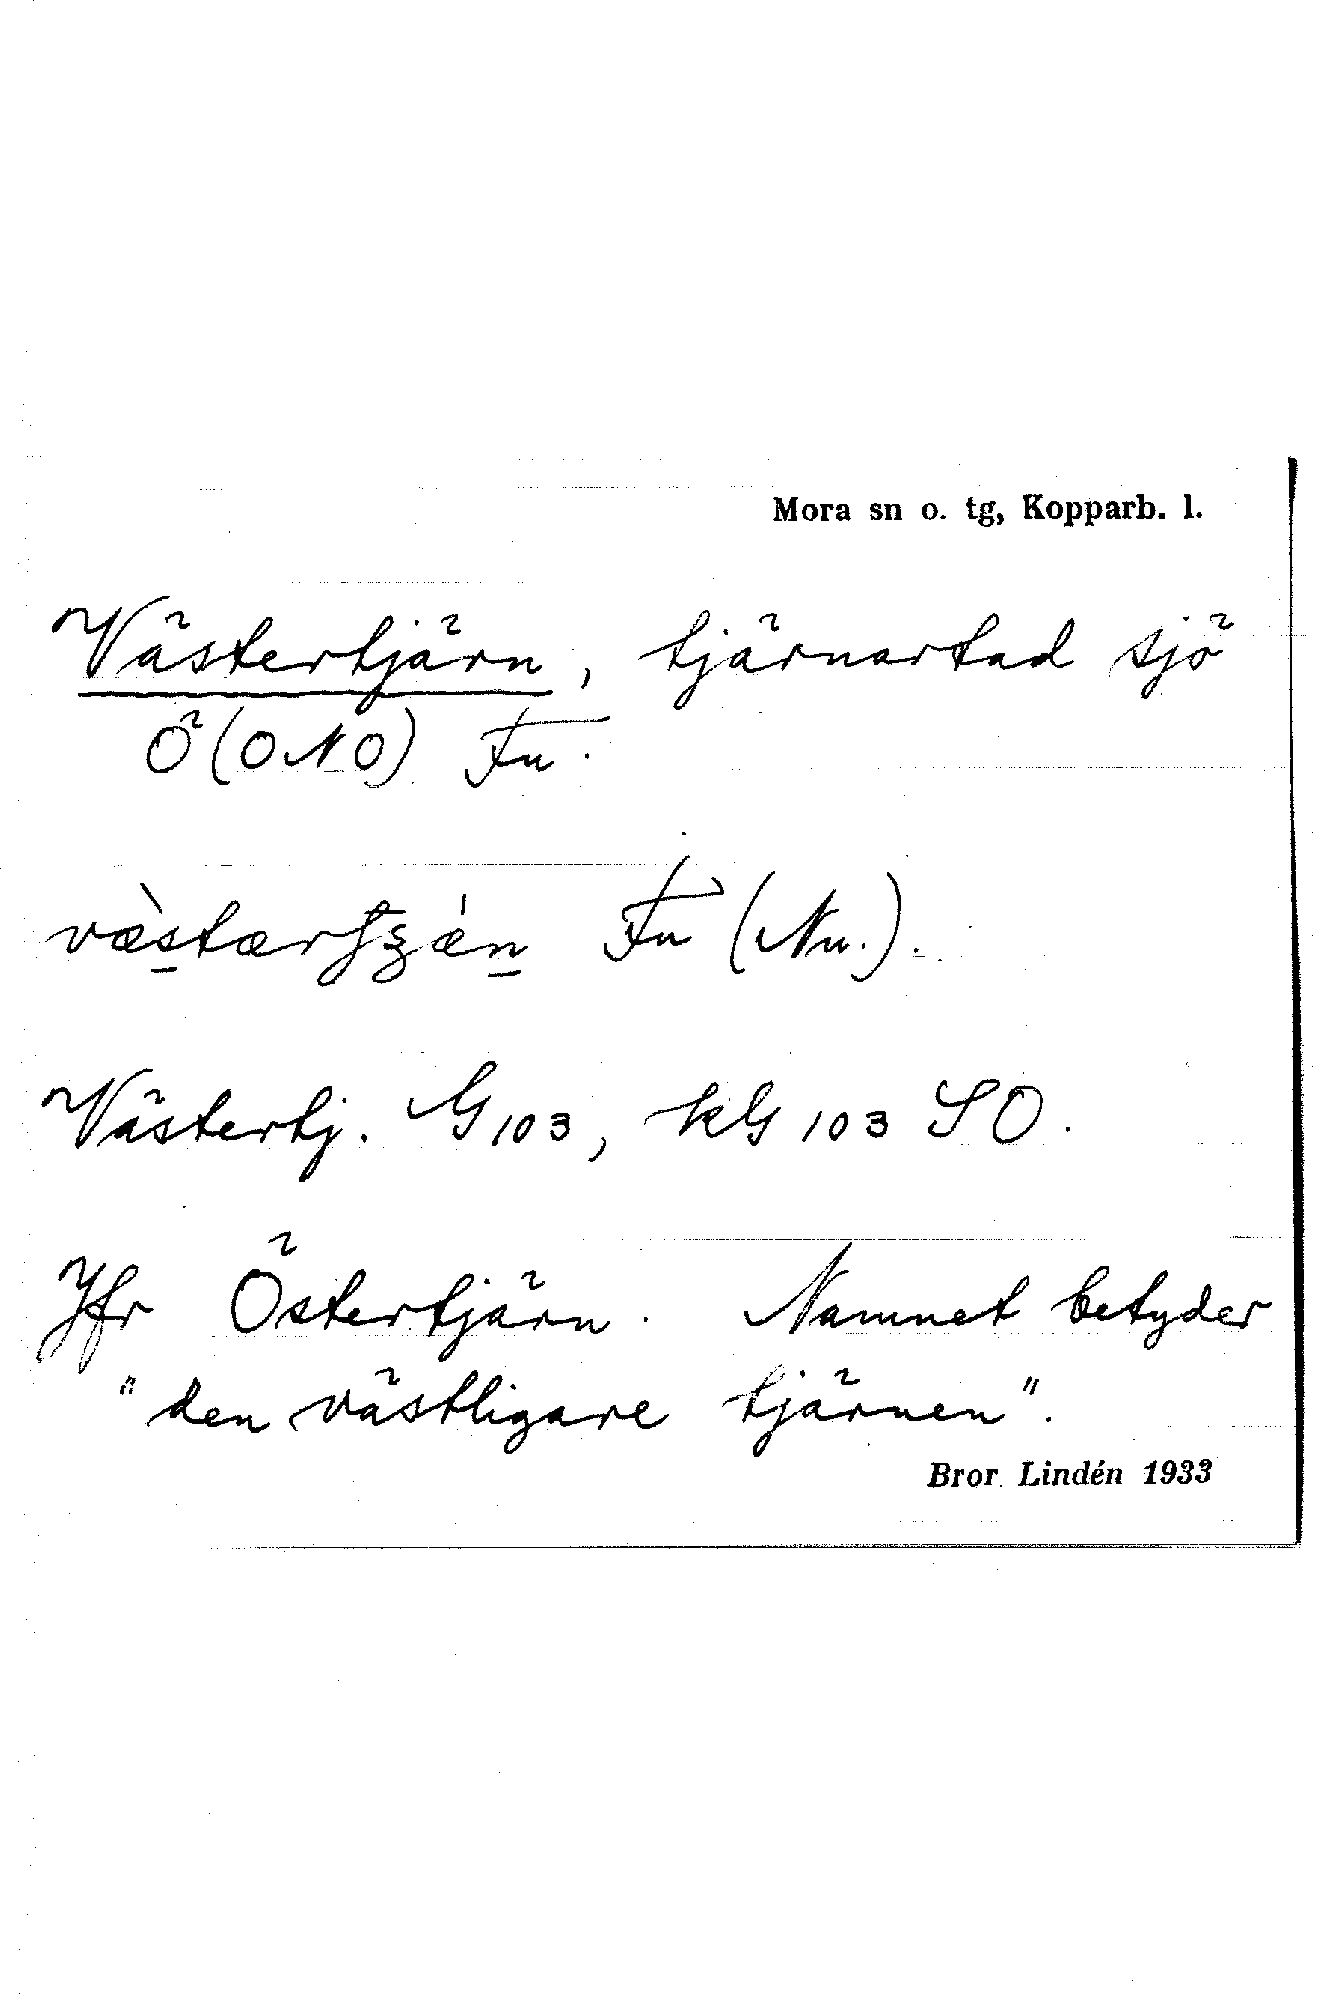 Mora sn o. tg, Kopparb. l.
Västertjärn, tjärnartad sjö
Ö (ONO) Fu.
Fu (Nu.).
Västertj. G 103, kG 103 SO.
Jfr Östertjärn. Namnet betyder
"den västligare tjärnen".
Bror Lindén 1933